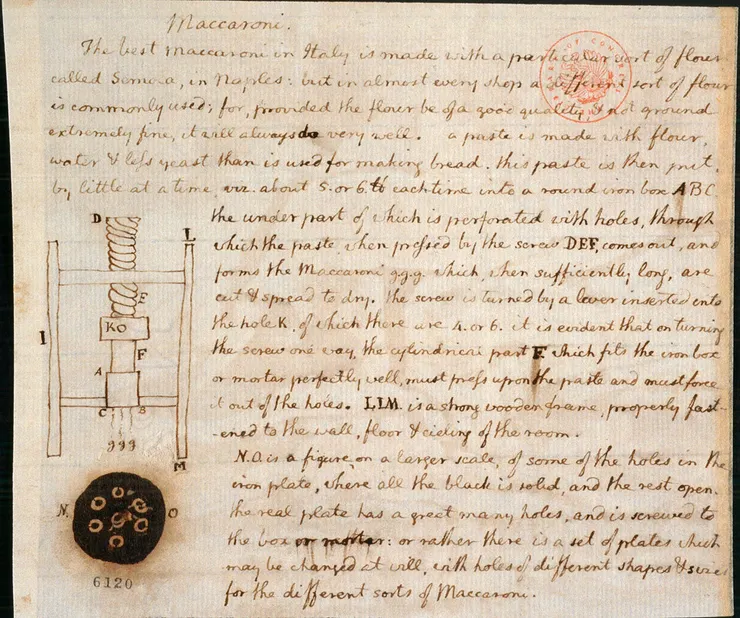 Maccaroni.
The best maccaroni in Italy is made with a particular sort of flour
called Semola, in Naples: but in almost every shop a different sort of flour
is commonly used; for, provided the flour be of a good quality, & not ground
extremely fine, it will always do very well. a paste is made with flour,
water & less yeast than is used for making bread. this paste is then put,
by little at a time, viz. about 5. or 6. ℔ each time into a round iron box ABC
the under part of which is perforated with holes, through
which the paste, when pressed by the screw DEF, comes out, and
forms the Maccaroni g.g.g. which, when sufficiently long, are
cut & spread to dry. the screw is turned by a lever inserted into
the hole K, of which there are 4. or 6. it is evident that on turning
the screw one way, the cylindrical part F. which fits the iron box
or mortar perfectly well, must press upon the paste and must force
it out of the holes. LIM. is a strong wooden frame, properly fast-
-ened to the wall, floor & cieling of the room.
N.O. is a figure, on a larger scale, of some of the holes in the
iron plate, where all the black is solid, and the rest open.
the real plate has a great many holes, and is screwed to
the box or mortar: or rather there is a set of plates which
may be changed at will, with holes of different shapes & sizes
for the different sorts of Maccaroni.
D
L
E
I
KO
F
A
C
B
ggg
M
N.
O
6120